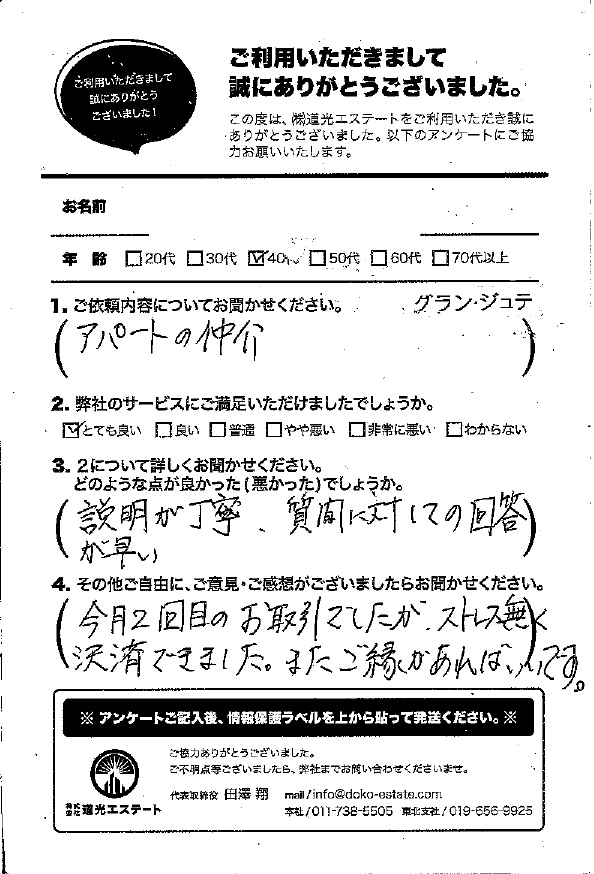 ご利用いただきまして
誠にありがとう
ございました!
ご利用いただきまして
誠にありがとうございました。
この度は、㈱道光エステートをご利用いただき誠に
ありがとうございました。以下のアンケートにご協
力お願いいたします。
お名前
年 齢 □20代 □30代 ☑40代 □50代 □60代 □70代以上
1. ご依頼内容についてお聞かせください。 グラン・ジュテ
(アパートの仲介)
2. 弊社のサービスにご満足いただけましたでしょうか。
☑とても良い □良い □普通 □やや悪い □非常に悪い □わからない
3. 2について詳しくお聞かせください。
どのような点が良かった(悪かった)でしょうか。
(説明が丁寧、質問に対しての回答
が早い)
4. その他ご自由に、ご意見・ご感想がございましたらお聞かせください。
(今月2回目のお取引でしたが、ストレス無く
決済できました。またご縁があればいいです。)
※ アンケートご記入後、情報保護ラベルを上から貼って発送ください。※
ご協力ありがとうございました。
ご不明点等ございましたら、弊社までお問い合わせくださいませ。
代表取締役 田澤 翔 mail/info@doko-estate.com
株式会社 道光エステート 本社/011-738-5505 東北支社/019-656-9925